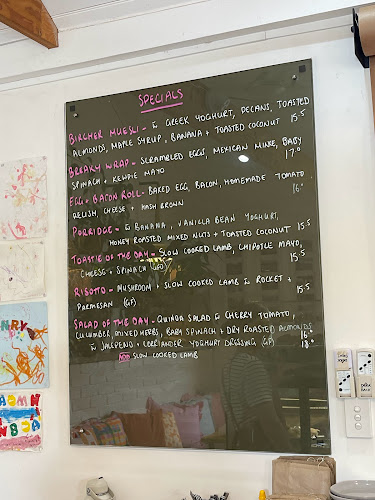 SPECIALS
BIRCHER MUESLI - W GREEK YOGHURT, PECANS, TOASTED
ALMONDS, MAPLE SYRUP, BANANA + TOASTED COCONUT 15.5
BREAKY WRAP - SCRAMBLED EGGS, MEXICAN MINCE, BABY
SPINACH + KEWPIE MAYO 17.0
EGG + BACON ROLL - BAKED EGG, BACON, HOMEMADE TOMATO
RELISH, CHEESE + HASH BROWN 16.
PORRIDGE - W BANANA, VANILLA BEAN YOGHURT,
HONEY ROASTED MIXED NUTS + TOASTED COCONUT 15.5
TOASTIE OF THE DAY - SLOW COOKED LAMB, CHIPOTLE MAYO,
CHEESE + SPINACH (GFO) 15.5
RISOTTO - MUSHROOM + SLOW COOKED LAMB W ROCKET +
PARMESAN (GF) 15.5
SALAD OF THE DAY - QUINOA SALAD W CHERRY TOMATO,
CUCUMBER, MIXED HERBS, BABY SPINACH + DRY ROASTED ALMONDS
W JALEPENO + CORRIANDER YOGHURT DRESSING (GF) 16.
ADD SLOW COOKED LAMB 18.0